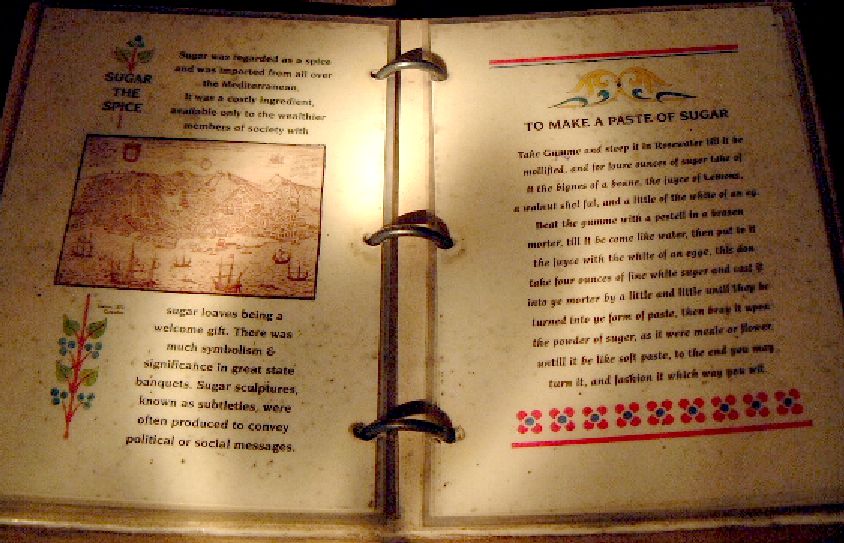 SUGAR
THE
SPICE
Sugar was regarded as a spice
and was imported from all over
the Mediterranean.
It was a costly ingredient,
available only to the wealthier
members of society with
sugar loaves being a
welcome gift. There was
much symbolism &
significance in great state
banquets. Sugar sculptures,
known as subtleties, were
often produced to convey
political or social messages.
TO MAKE A PASTE OF SUGAR
Take Gumme and steep it in Rosewater till it be
mollified, and for foure ounces of sugar take of
it the bignes of a beane, the juyce of Lemons,
a walnut shel ful, and a little of the white of an eg.
Beat the gumme with a pestell in a brasen
morter, till it be come like water, then put to it
the juyce with the white of an egge, this don
take four ounces of fine white suger and cast it
into ye morter by a little and little until they be
turned into ye form of paste, then bray it upon
the powder of sugar, as it were meale or flower,
untill it be like soft paste, to the end you may
turn it, and fashion it which way you wil.